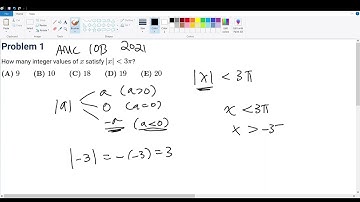 Problem 1 AMC 10B 2021
How many integer values of x satisfy |x| < 3π?
(A) 9 (B) 10 (C) 18 (D) 19 (E) 20
|x| < 3π
a (a>0)
|a| 0 (a=0)
-a (a<0)
x < 3π
x > -3
|-3| = -(-3) = 3